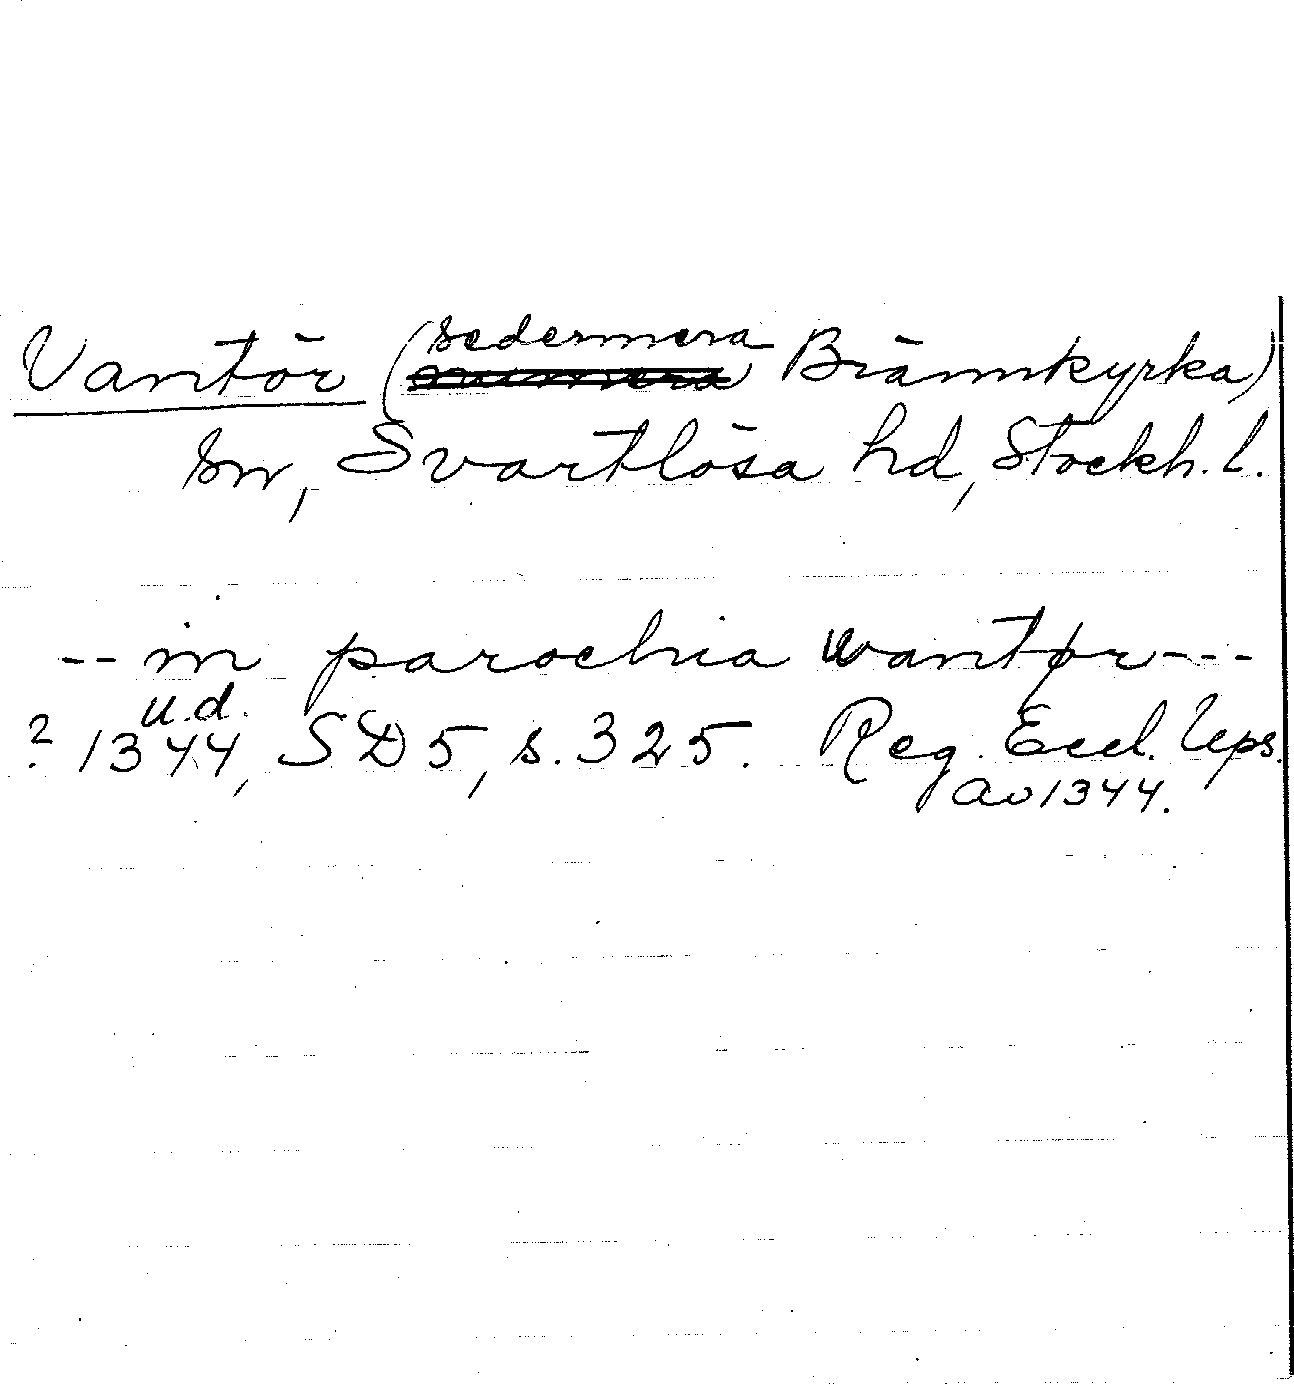 Vantör (sedermera Brännkyrka)
sn, Svartlösa hd, Stockh. l.
-- in parochia wantør ---
u.d.
? 1344, SD 5, s. 325. Reg. Eccl. Ups.
av 1344.